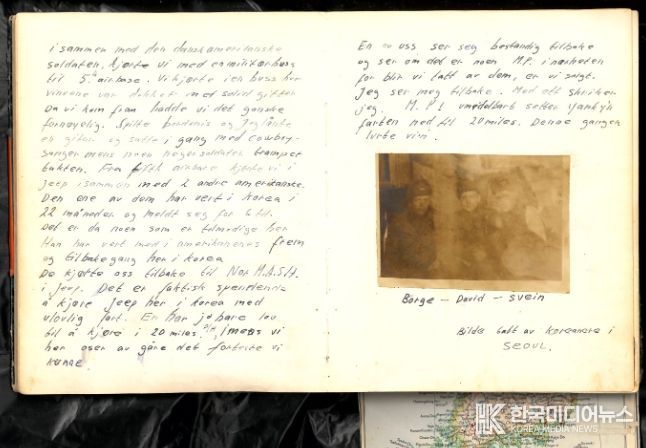 i sammen med den danskamerikanske
soldaten, kjørte vi med en militærbuss
til 5th airbase. Vi kjørte i en buss hvor
vinduene var dekket med solid gitter
Da vi kom fram hadde vi det ganske
fornøyelig. Spilte og jeg lånte
en gitar og satte i gang med cowboy-
sanger mens noen negersoldater trampet
takten. Fra fifth airbase kjørte vi i
jeep i sammen med 2 andre amerikanske.
Den ene av dem har vert i Korea i
22 måneder og meldt seg for 6 til.
Det er da noen som er tålmodige her
Han har vert med i amerikanernes frem
og tilbakegang her i Korea
De kjørte oss tilbake til Nor.M.A.S.H.
i jeep. Det er faktisk spennende
å kjøre jeep her i Korea med
ulovlig fart. En har jo bare lov
til å kjøre i 20 miles. I mens vi
her oser av gåre det forteste vi
kunne.
En av oss ser seg bestandig tilbake
og ser om det er noen M.P. i nærheten
for blir vi tatt av dem, er vi solgt.
Jeg ser meg tilbake. Med ett skriker
jeg. M.P! umiddelbart setter yankyn
farten ned til 20 miles. Denne gangen
lurte vi'n.
Børge - David - Svein
Bilde tatt av koreanere i
SEOUL.
한국미디어뉴스
KOREA MEDIA NEWS